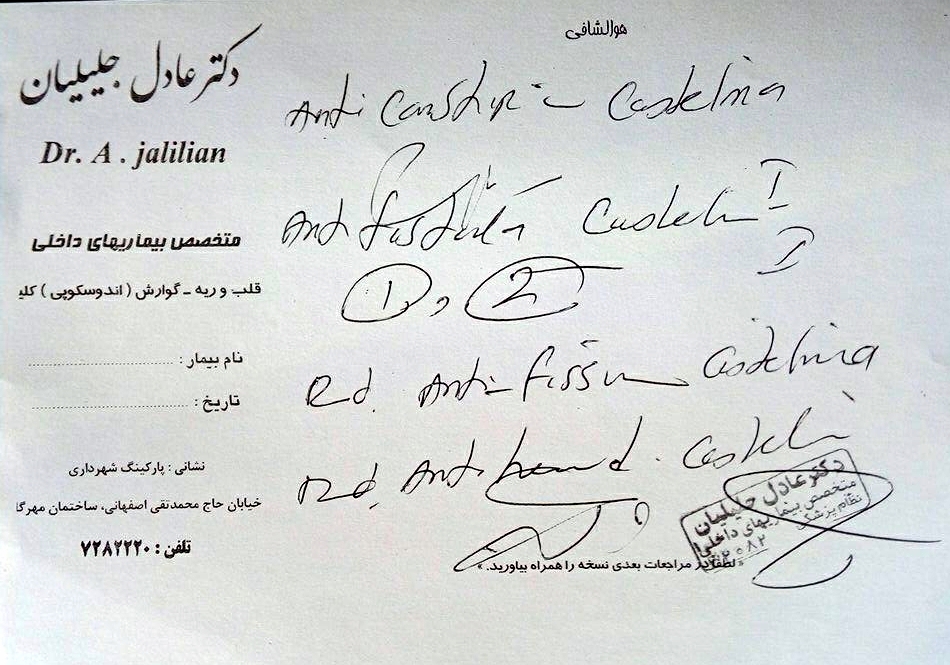 هوالشافی
دکتر عادل جلیلیان
Dr. A . jalilian
متخصص بیماریهای داخلی
قلب و ریه - گوارش ( اندوسکوپی ) کلی
نام بیمار :
تاریخ :
نشانی : پارکینگ شهرداری
خیابان حاج محمدتقی اصفهانی، ساختمان مهرگا
تلفن : ۷۲۸۲۲۲۰
Anti Castelina
Anti Castelin I
I
1 و 2
Rd. Anti fissur Castelina
Rd. Anti Castelin
دکتر عادل جلیلیان
متخصص بیماریهای داخلی
نظام پزشکی
لطفا در مراجعات بعدی نسخه را همراه بیاورید.